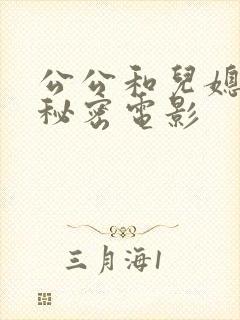 公公和兒媳
秘密電影
三月海1